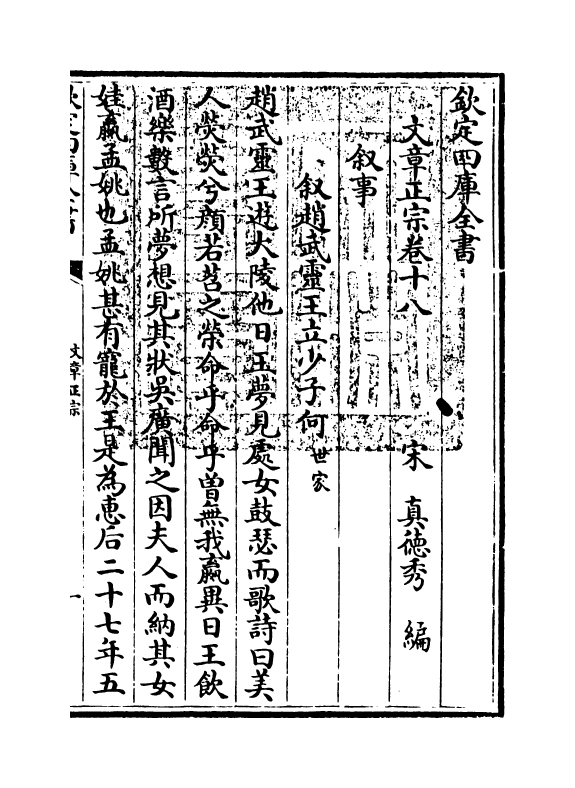 欽定四庫全書
文章正宗卷十八
宋　真德秀　編
叙事
叙趙武靈王立少子何世家
趙武靈王遊大陵他日王夢見處女鼓瑟而歌詩曰美
人熒熒兮顔若苕之榮命乎命乎曾無我嬴異日王飲
酒樂數言所夢想見其狀吳廣聞之因夫人而納其女
娃嬴孟姚也孟姚甚有寵於王是為惠后二十七年五
欽定四庫全書
文章正宗
一